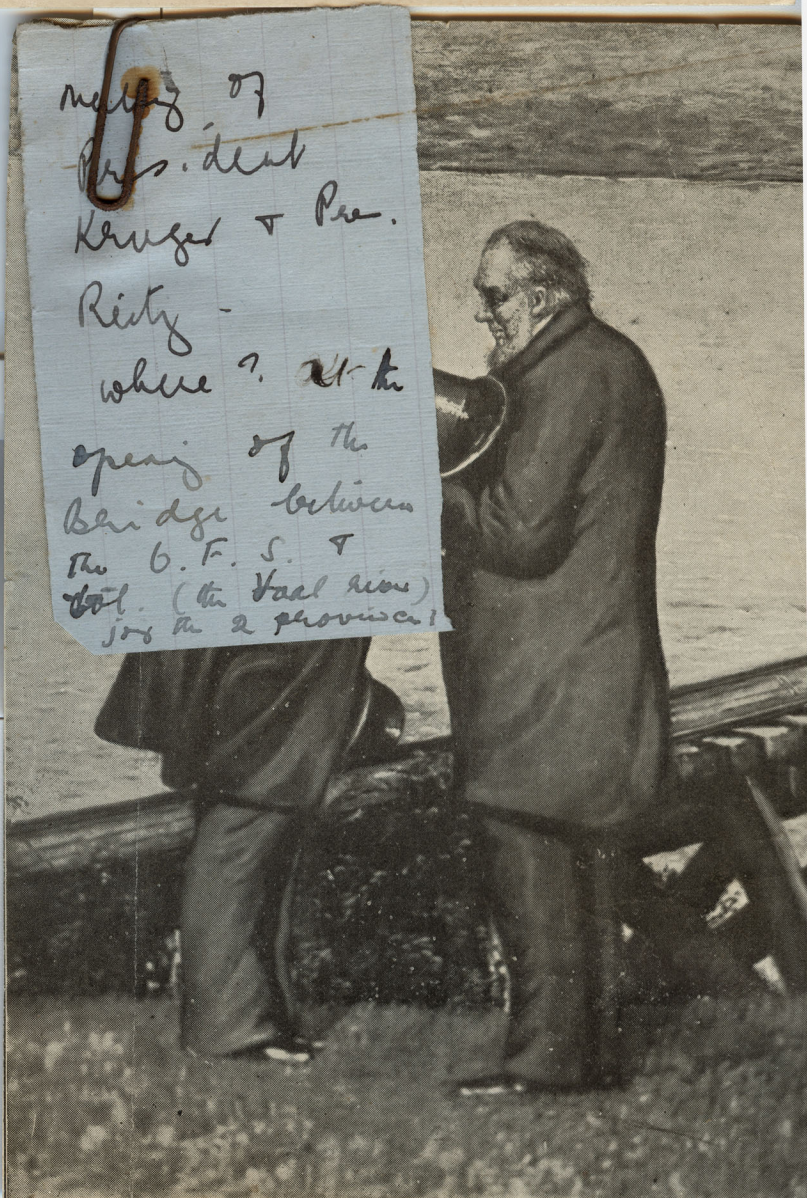 Meeting of
President
Kruger & Pres.
Reitz -
where? At the
opening of the
Bridge between
the O.F.S. &
Tvl. (the Vaal river)
for the 2 provinces